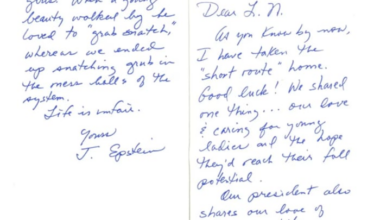 girls. When a young
beauty walked by he
loved to "grab snatch,"
whereas we ended
up snatching grub in
the mess halls of the
system.
Life is unfair.
Yours
J. Epstein
Dear L. N.
As you know by now,
I have taken the
"short route" home.
Good luck! We shared
one thing... our love
& caring for young
ladies and the hope
they'd reach their full
potential.
Our president also
shares our love of